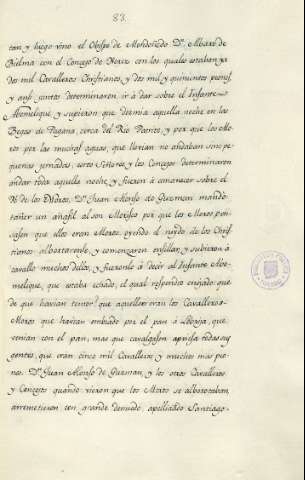 83.
tan, y luego vino el Obispo de Mondoñedo Dn. Albaro de
Bielma con el Concejo de Xerez con los quales estaban ya
dos mil Cavalleros Christianos, y dos mil y quinientos peones
y ansi juntos determinaron ir á dar sobre el Infante
Abomelique, y supieron que dormia aquella noche en las
Begas de Pagana, cerca del Rio Patrite, y por que los Mo-
ros por las muchas aguas, que llovian no andaban sino pe-
queñas jornadas, estos Señores, y los Concejos determinaron
andar toda aquella noche, y fueron á amanecer sobre el
Dn. Juan Alonso de Guzman mandó
tañer un añafil al son Morisco por que los Moros pen-
sasen que ellos eran Moros, oyendo el ruydo de los Chris-
tianos alborotaronse, y comenzaron ensillar, y subieron á
cavallo muchos dellos, y fueronlo á decir al Infante Abo-
melique, que estaba echado, el qual respondio enojado que
de que havian temor? que aquellos eran los Cavalleros
Moros que havian embiado por el pan á Lebrija, que
venian con el pan; mas que cavalgasen aprisa todas sus
gentes, que eran cinco mil Cavalleros, y muchos mas pe-
nes. Dn. Juan Alonso de Guzman, y los otros Cavalleros
y Concejos quando vieron que los Moros se alborotaban,
arremetieron con grande denuedo, apellidando Santiago-